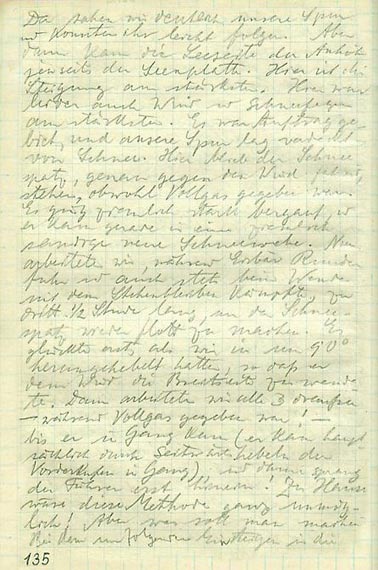 Da sahen wir deutlich unsere Spur
u konnten ihr leicht folgen. Aber
dann kam die Leeseite der Anhöhe
jenseits der Seenplatte. Hier ist die
Steigung am stärksten. Hier war
leider auch Wind u Schneefegen
am stärksten. Es war
und unsere Spur lag
von Schnee. Hier blieb der Schnee
spatz, genau gegen den Wind
stehen, obwohl Vollgas gegeben war.
Es ging ziemlich stark bergauf, u
er kam gerade in eine ziemlich
neue Schneewehe. Nun
arbeiteten wir, während
fuhr u auch stets beim
mit dem Stehenbleiben kämpfte, zu
dritt 1/2 Stunde lang, um den Schnee-
spatz wieder flott zu machen. Es
glückte erst, als wir ihn um 90°
herumgehebelt hatten, so daß er
dem Wind die Breitseite zuwende
te. Dann arbeiteten wir alle 3
– während Vollgas gegeben war! –
bis er in Gang kam (er kam haupt
sächlich durch Seitwärtshebeln der
Vorderkufen in Gang), und dann sprang
der Führer erst hinein! Zu Hause
wäre diese Methode ganz unmög-
lich! Aber was soll man machen
Bei dem nun folgenden in die
135